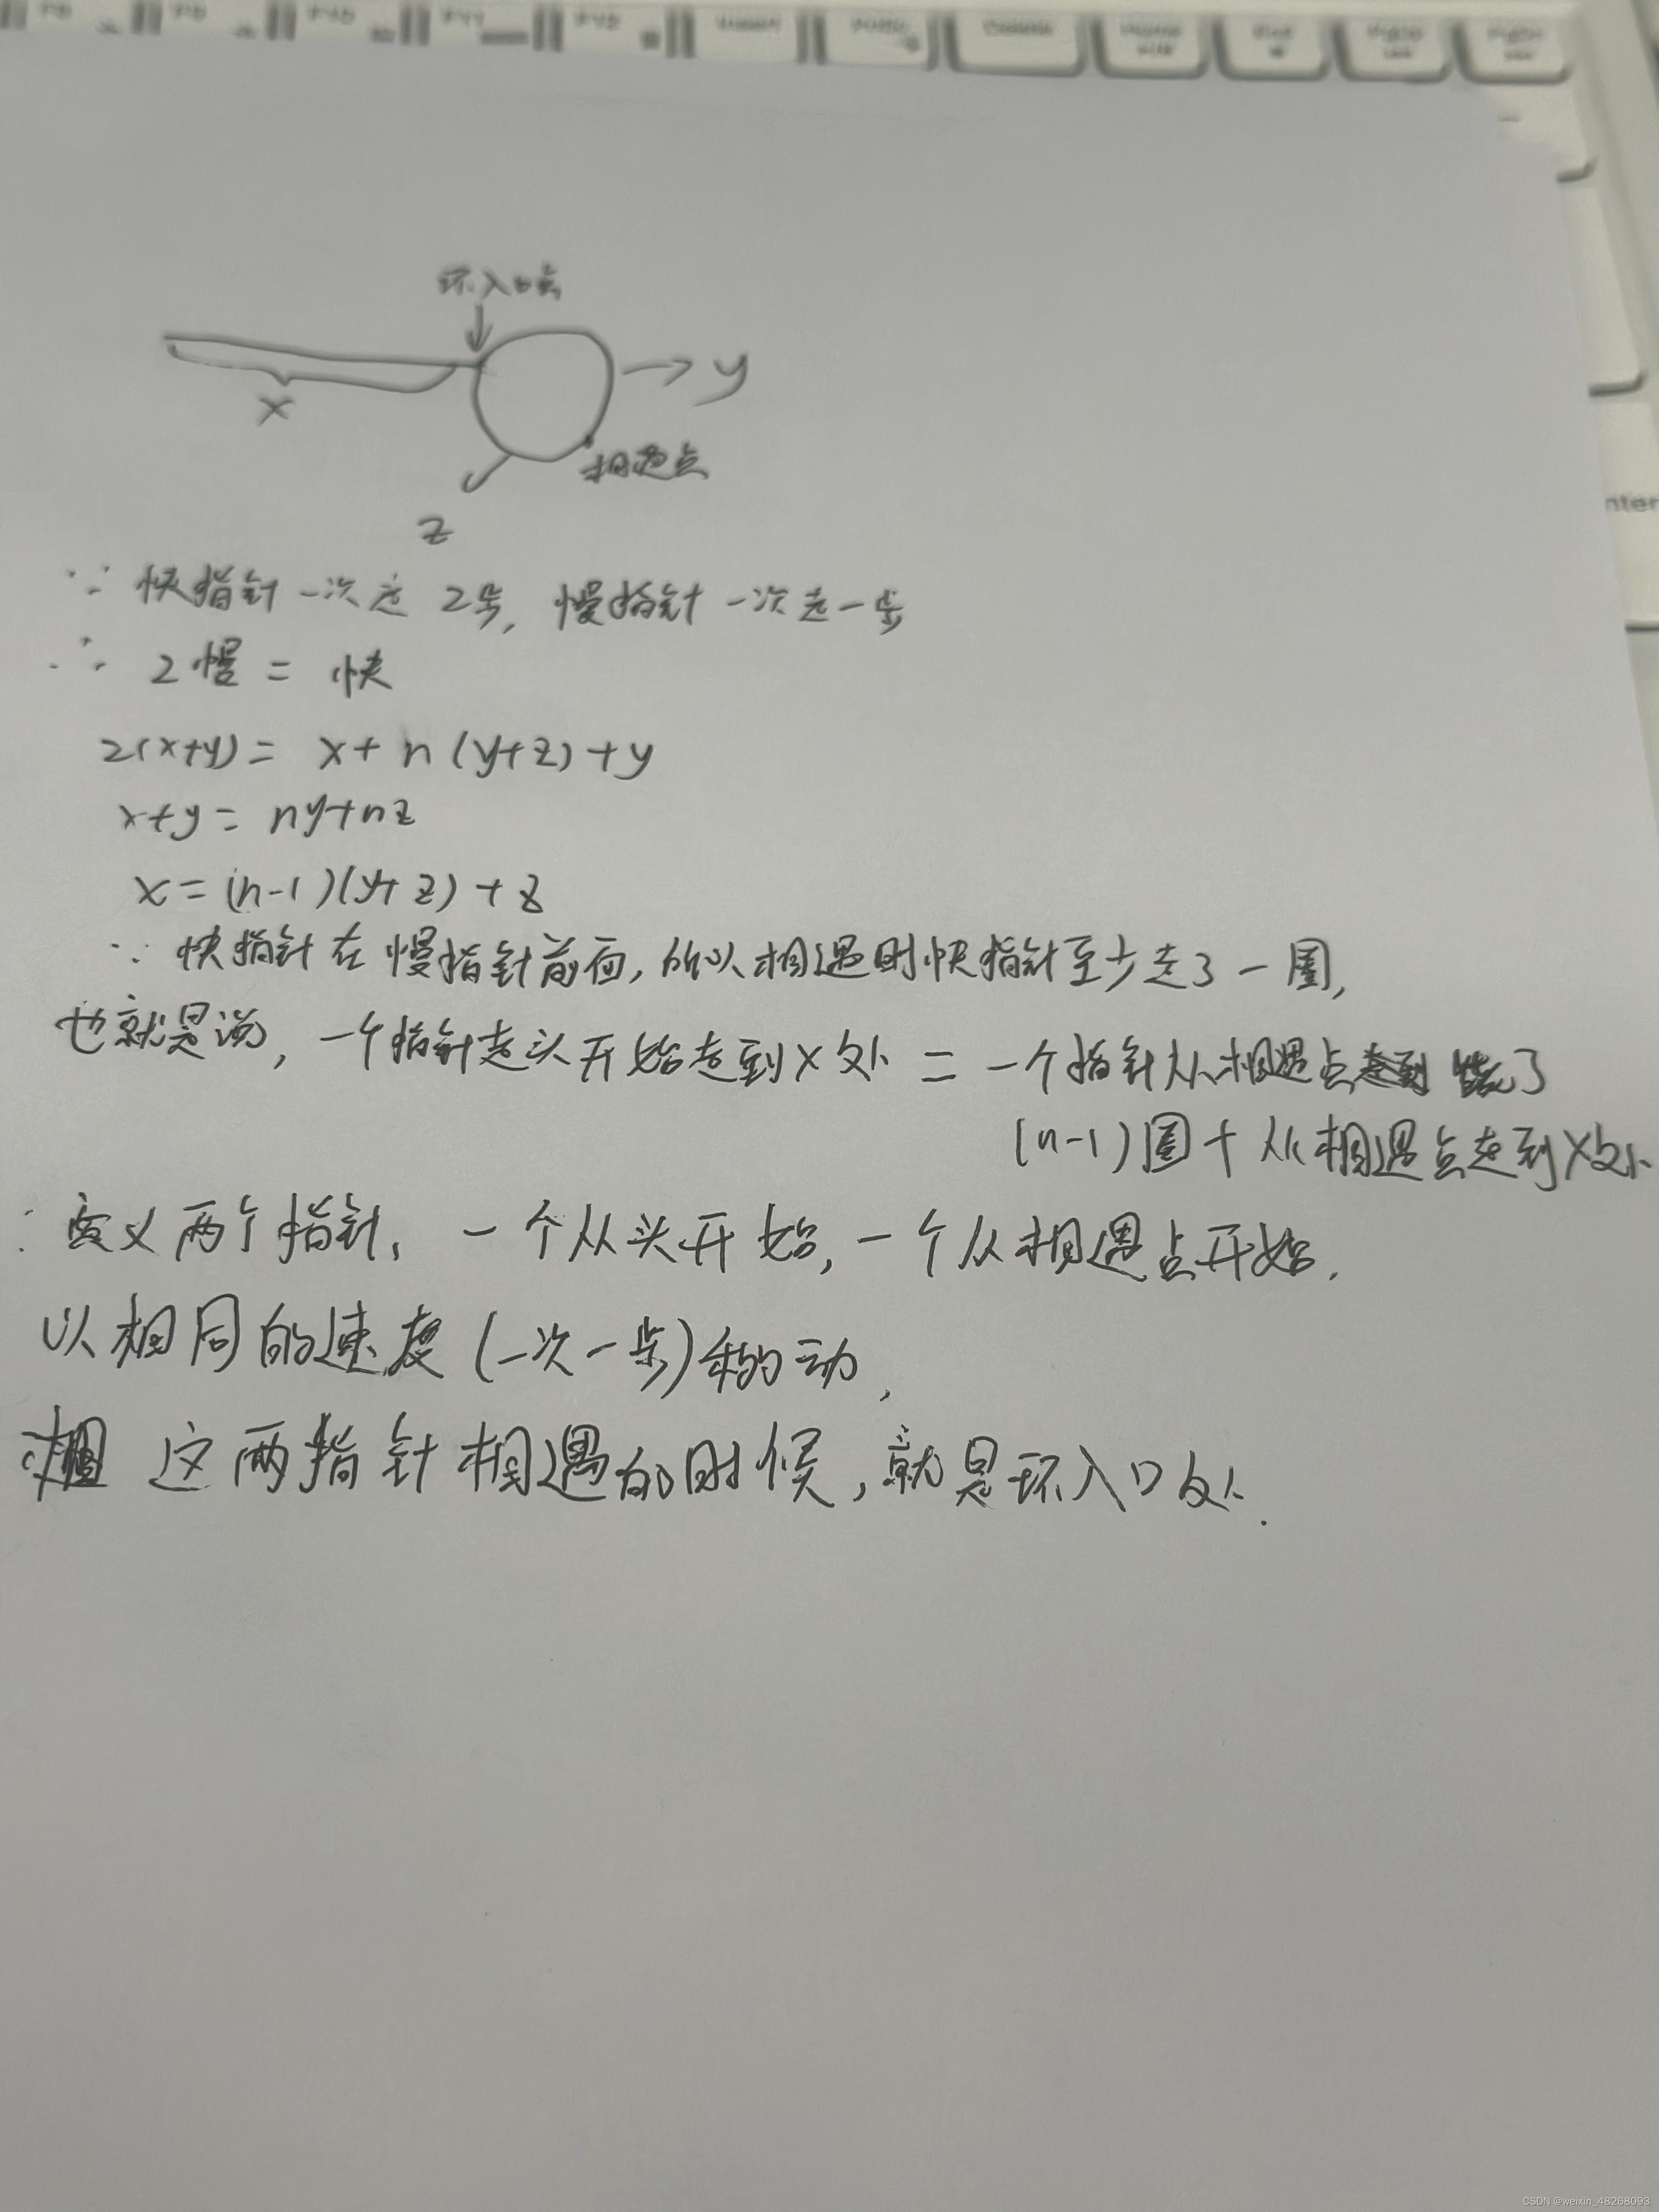 环入口点
x
y
相遇点
z
∵ 快指针一次走2步, 慢指针一次走一步
∴ 2慢 = 快
2(x+y) = x+n(y+z)+y
x+y = ny+nz
x=(n-1)(y+z)+z
∵ 快指针在慢指针前面,所以相遇时快指针至少走了一圈,
也就是说, 一个指针走头开始走到X处 = 一个指针从相遇点 了
(n-1)圈+从相遇点走到X处
: 定义两个指针, 一个从头开始, 一个从相遇点开始.
以相同的速度(一次一步)移动,
这两指针相遇的时候,就是环入口处.
nter
CSDN @weixin_48268093